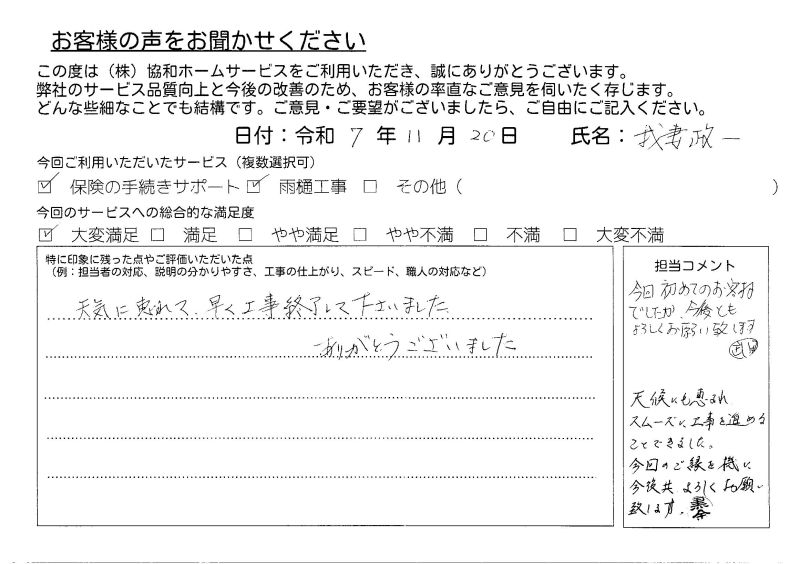 お客様の声をお聞かせください
この度は（株）協和ホームサービスをご利用いただき、誠にありがとうございます。
弊社のサービス品質向上と今後の改善のため、お客様の率直なご意見を伺いたく存じます。
どんな些細なことでも結構です。ご意見・ご要望がございましたら、ご自由にご記入ください。
日付：令和 7 年 11 月 20 日 氏名：我妻政一
今回ご利用いただいたサービス（複数選択可）
☑ 保険の手続きサポート ☑ 雨樋工事 □ その他（ ）
今回のサービスへの総合的な満足度
☑ 大変満足 □ 満足 □ やや満足 □ やや不満 □ 不満 □ 大変不満
特に印象に残った点やご評価いただいた点
（例：担当者の対応、説明の分かりやすさ、工事の仕上がり、スピード、職人の対応など）
天気に恵れて、早く工事終了して下さいました
ありがとうございました
担当コメント
今回初めてのお客様
でしたが、今後とも
よろしくお願い致します
天候にも恵まれ
スムーズに工事を進める
ことできました。
今回のご縁を機に
今後共よろしくお願い
致します。